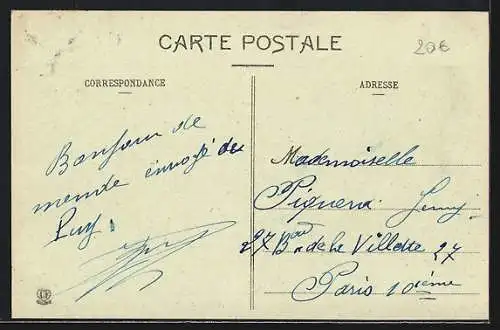 CARTE POSTALE
20€
CORRESPONDANCE
ADRESSE
Bonjour de
mende envoyé du
Puy
Mademoiselle
Pigneux Jenny
27 Bou de la Villette 27
Paris 10ième